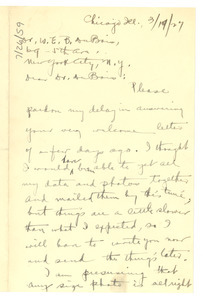 Chicago Ill. 3/19/27
Dr. W. E. B. DuBois,
69 - 5th Ave.
New York City, N.Y.
Dear Dr. DuBois:
Please
pardon my delay in answering
your very welcome letter
of a few days ago. I thought
how
I would be able to get all
my data and photos together
and mailed them by this time,
but things are a little slower
than what I expected, so I
will have to write you now
and send the things later.
I am presuming that
any size photo is alright